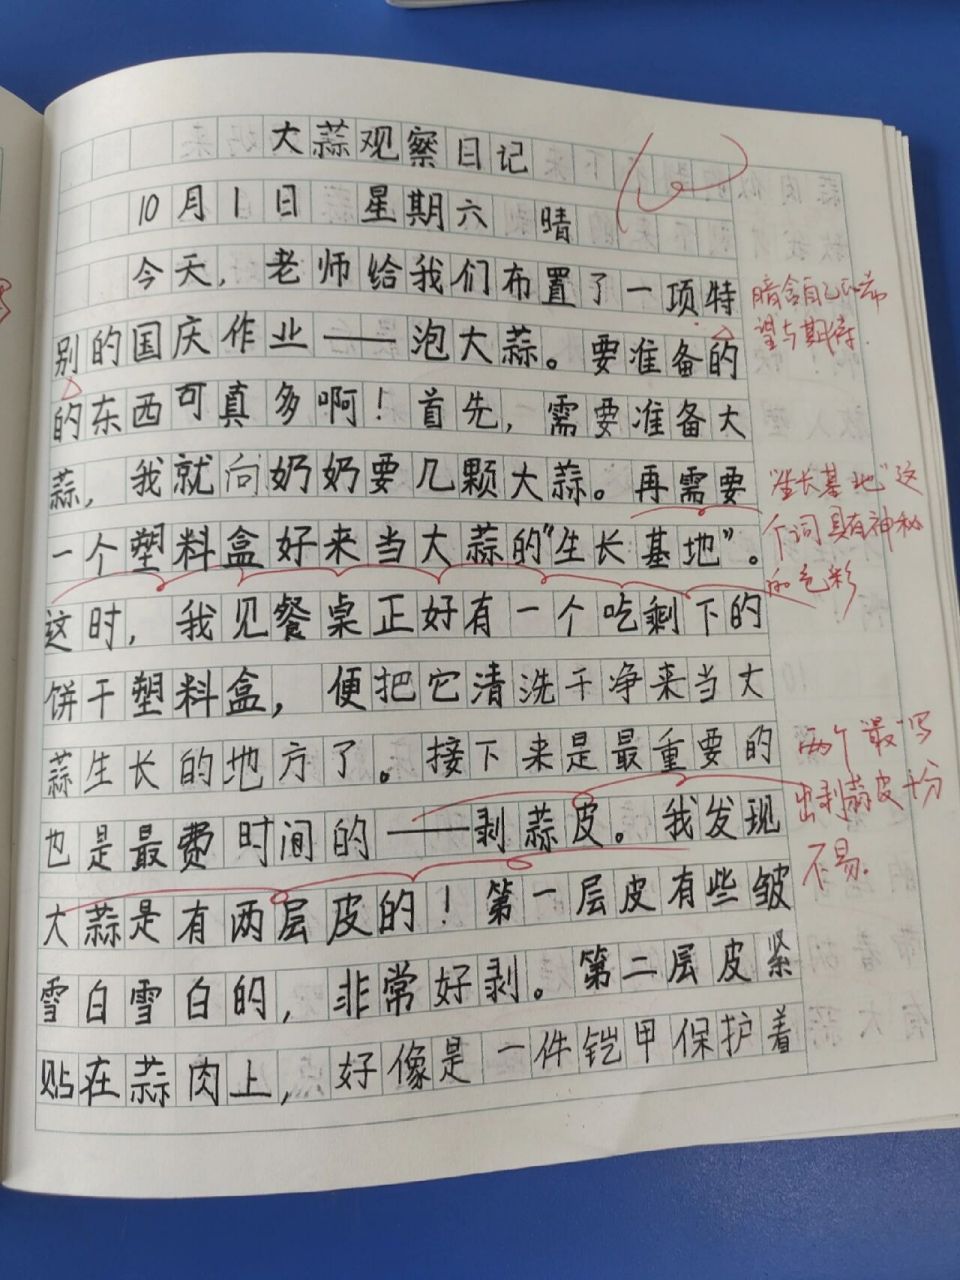 大蒜观察日记
10月1日 星期六 晴
今天，老师给我们布置了一项特
别的国庆作业——泡大蒜。要准备的
的东西可真多啊！首先，需要准备大
蒜，我就向奶奶要几颗大蒜。再需要
一个塑料盒好来当大蒜的“生长基地”。
这时，我见餐桌正好有一个吃剩下的
饼干塑料盒，便把它清洗干净来当大
蒜生长的地方了。接下来是最重要的
也是最费时间的——剥蒜皮。我发现
大蒜是有两层皮的！第一层皮有些皱
雪白雪白的，非常好剥。第二层皮紧
贴在蒜肉上，好像是一件铠甲保护着
暗含自己的希
望与期待.
“生长基地”这
个词具有神秘
的色彩
两个“最”写
出剥蒜皮十分
不易.